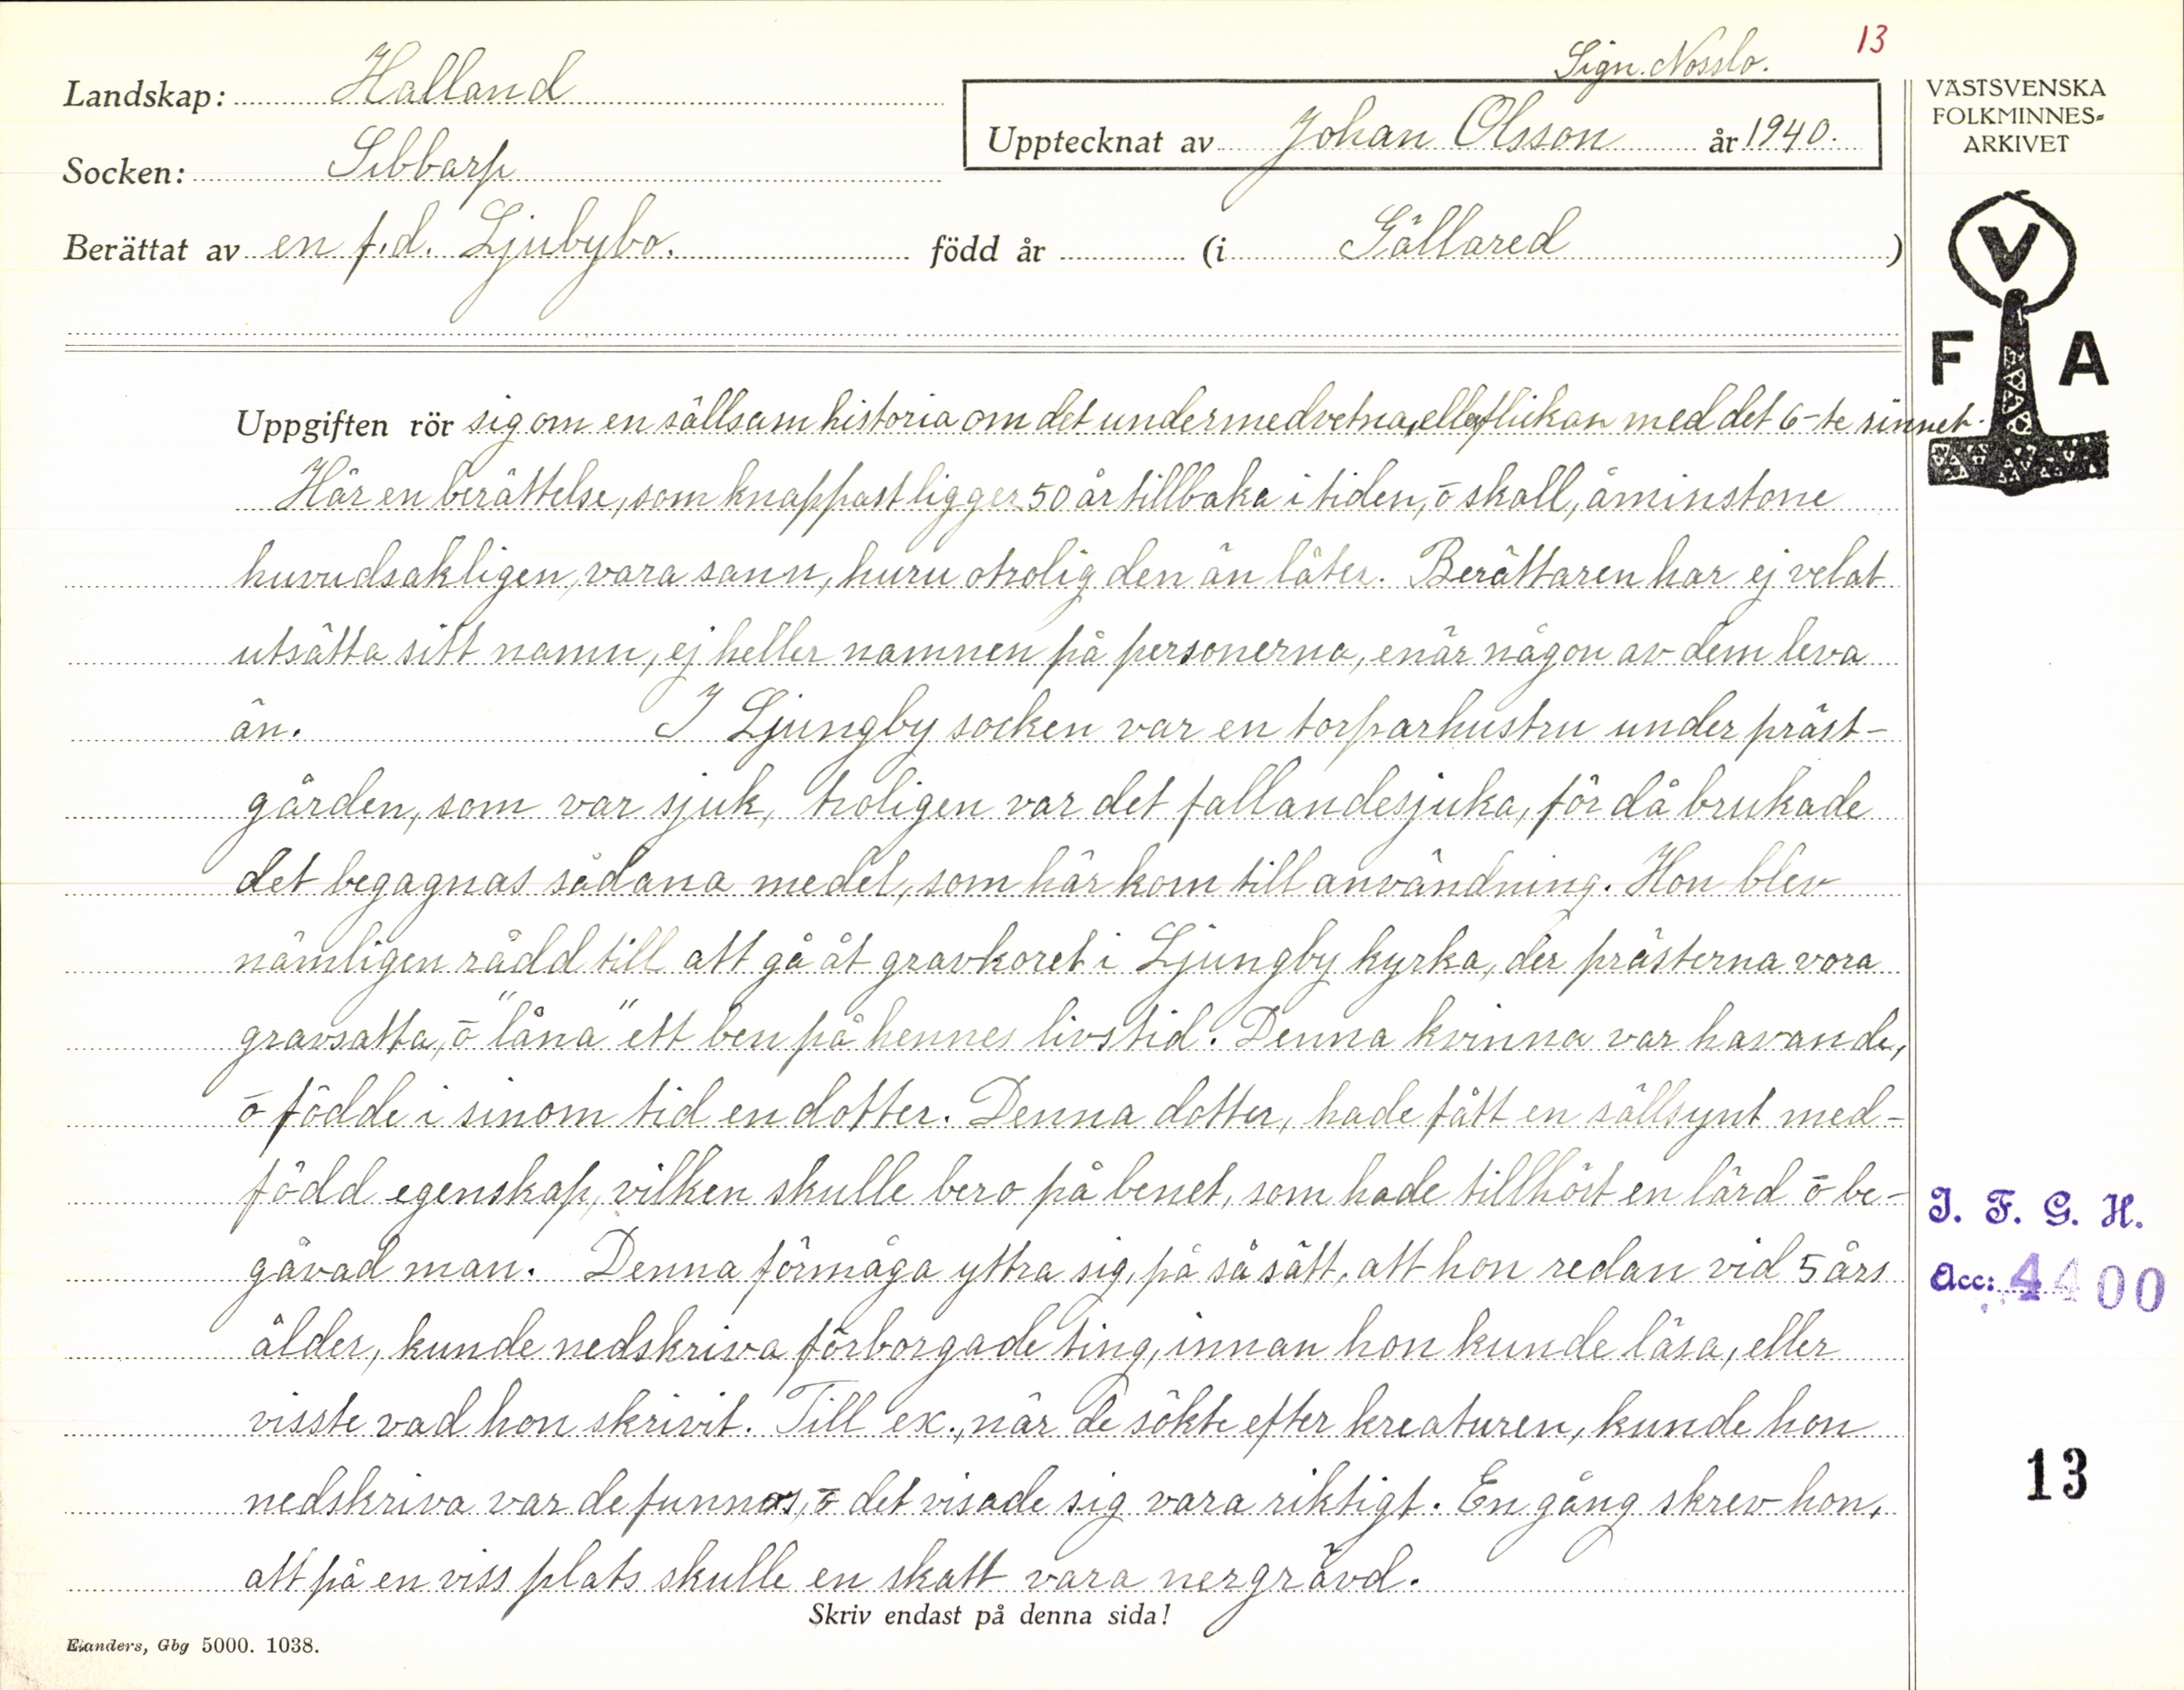 13
Sign. Nosslo.
Landskap: Halland
Upptecknat av Johan Olsson år 1940.
Socken: Sibbarp
Berättat av en f.d. Ljubybo. född år (i Gällared )
VÄSTSVENSKA
FOLKMINNES=
ARKIVET
V
F A
Uppgiften rör sig om en sällsam historia om det undermedvetna, eller flickan med det 6-te sinnet.
Här en berättelse, som knappast ligger 50 år tillbaka i tiden, o skall, åminstone
huvudsakligen, vara sann, huru otrolig den än låter. Berättaren har ej velat
utsätta sitt namn, ej heller namnen på personerna, enär någon av dem leva
än. I Ljungby socken var en torparhustru under präst-
gården, som var sjuk, troligen var det fallandesjuka, för då brukade
det begagnas sådana medel, som här kom till användning. Hon blev
nämligen rådd till att gå åt gravkoret i Ljungby kyrka, der prästerna vora
gravsatta, o "låna" ett ben på hennes livstid. Denna kvinna var havande,
o födde i sinom tid en dotter. Denna dotter, hade fått en sällsynt med-
född egenskap, vilken skulle bero på benet, som hade tillhört en lärd o be-
gåvad man. Denna förmåga yttra sig, på så sätt, att hon redan vid 5 års
ålder, kunde nedskriva förborgade ting, innan hon kunde läsa, eller
visste vad hon skrivit. Till ex., när de sökte efter kreaturen, kunde hon
nedskriva var de funnos, o det visade sig vara riktigt. En gång skrev hon,
att på en viss plats skulle en skatt vara nergrävd.
J. F. G. H.
Acc: 4400
13
Skriv endast på denna sida!
Elanders, Gbg 5000. 1038.